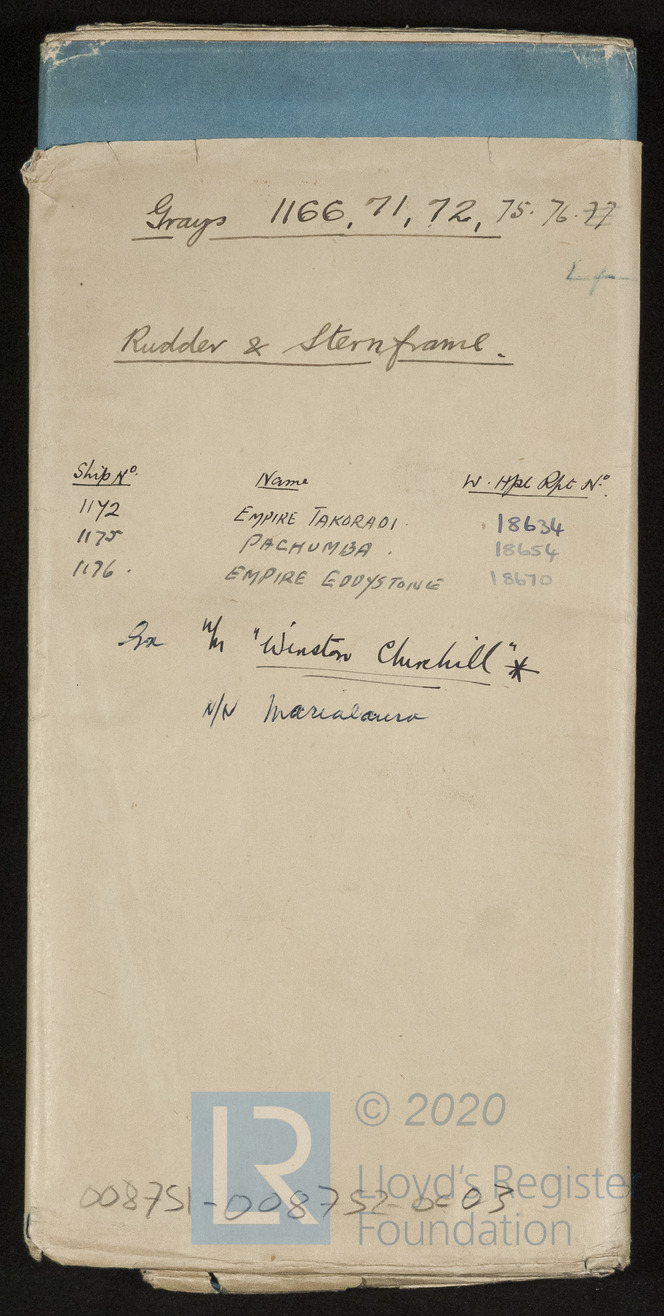 Grays 1166, 71, 72, 75. 76. 77
Rudder & Sternframe.
Ship Nº. Name W. Hpl Rpt Nº.
1172 EMPIRE TAKORADI. 18634
1175 PACHUMBA. 18654
1176. EMPIRE EDDYSTONE 18670
Ex "Winston Churchill" *
N/N Marialaura
008751-008752-0C03
LR
© 2020
Lloyd's Register
Foundation